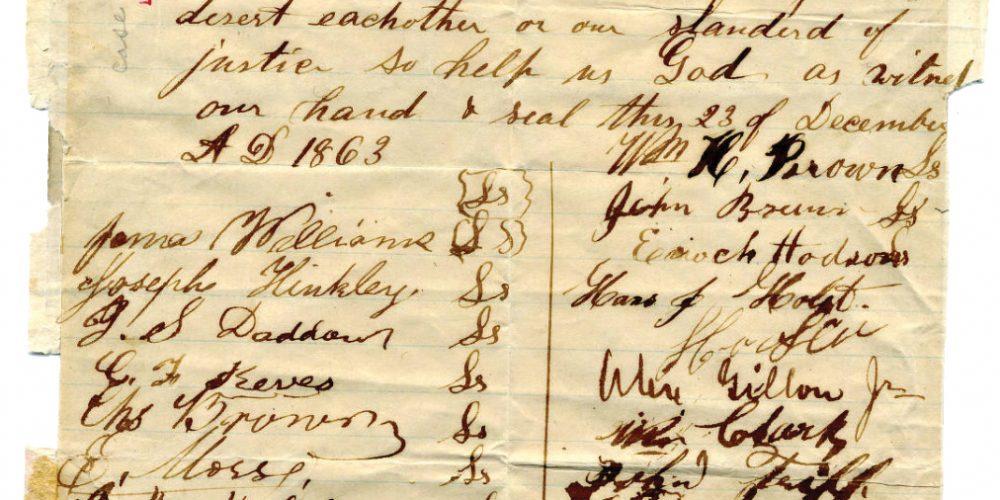 desert eachother or our standerd of
justice so help us God as witnes
our hand & seal this 23 of December
A D 1863
{Ls}
James Williams {LS}
Joseph Hinkley Ls
J. S Daddow Ls
C. F Keeves Ls
Chs Brown Ls
E. Morse, Ls
Wm H. Brown Ls
John Brown Ls
Enoch Hodson Ls
Hans J Holst.
Alex Gillon Jr
Clark
John Tripp
case